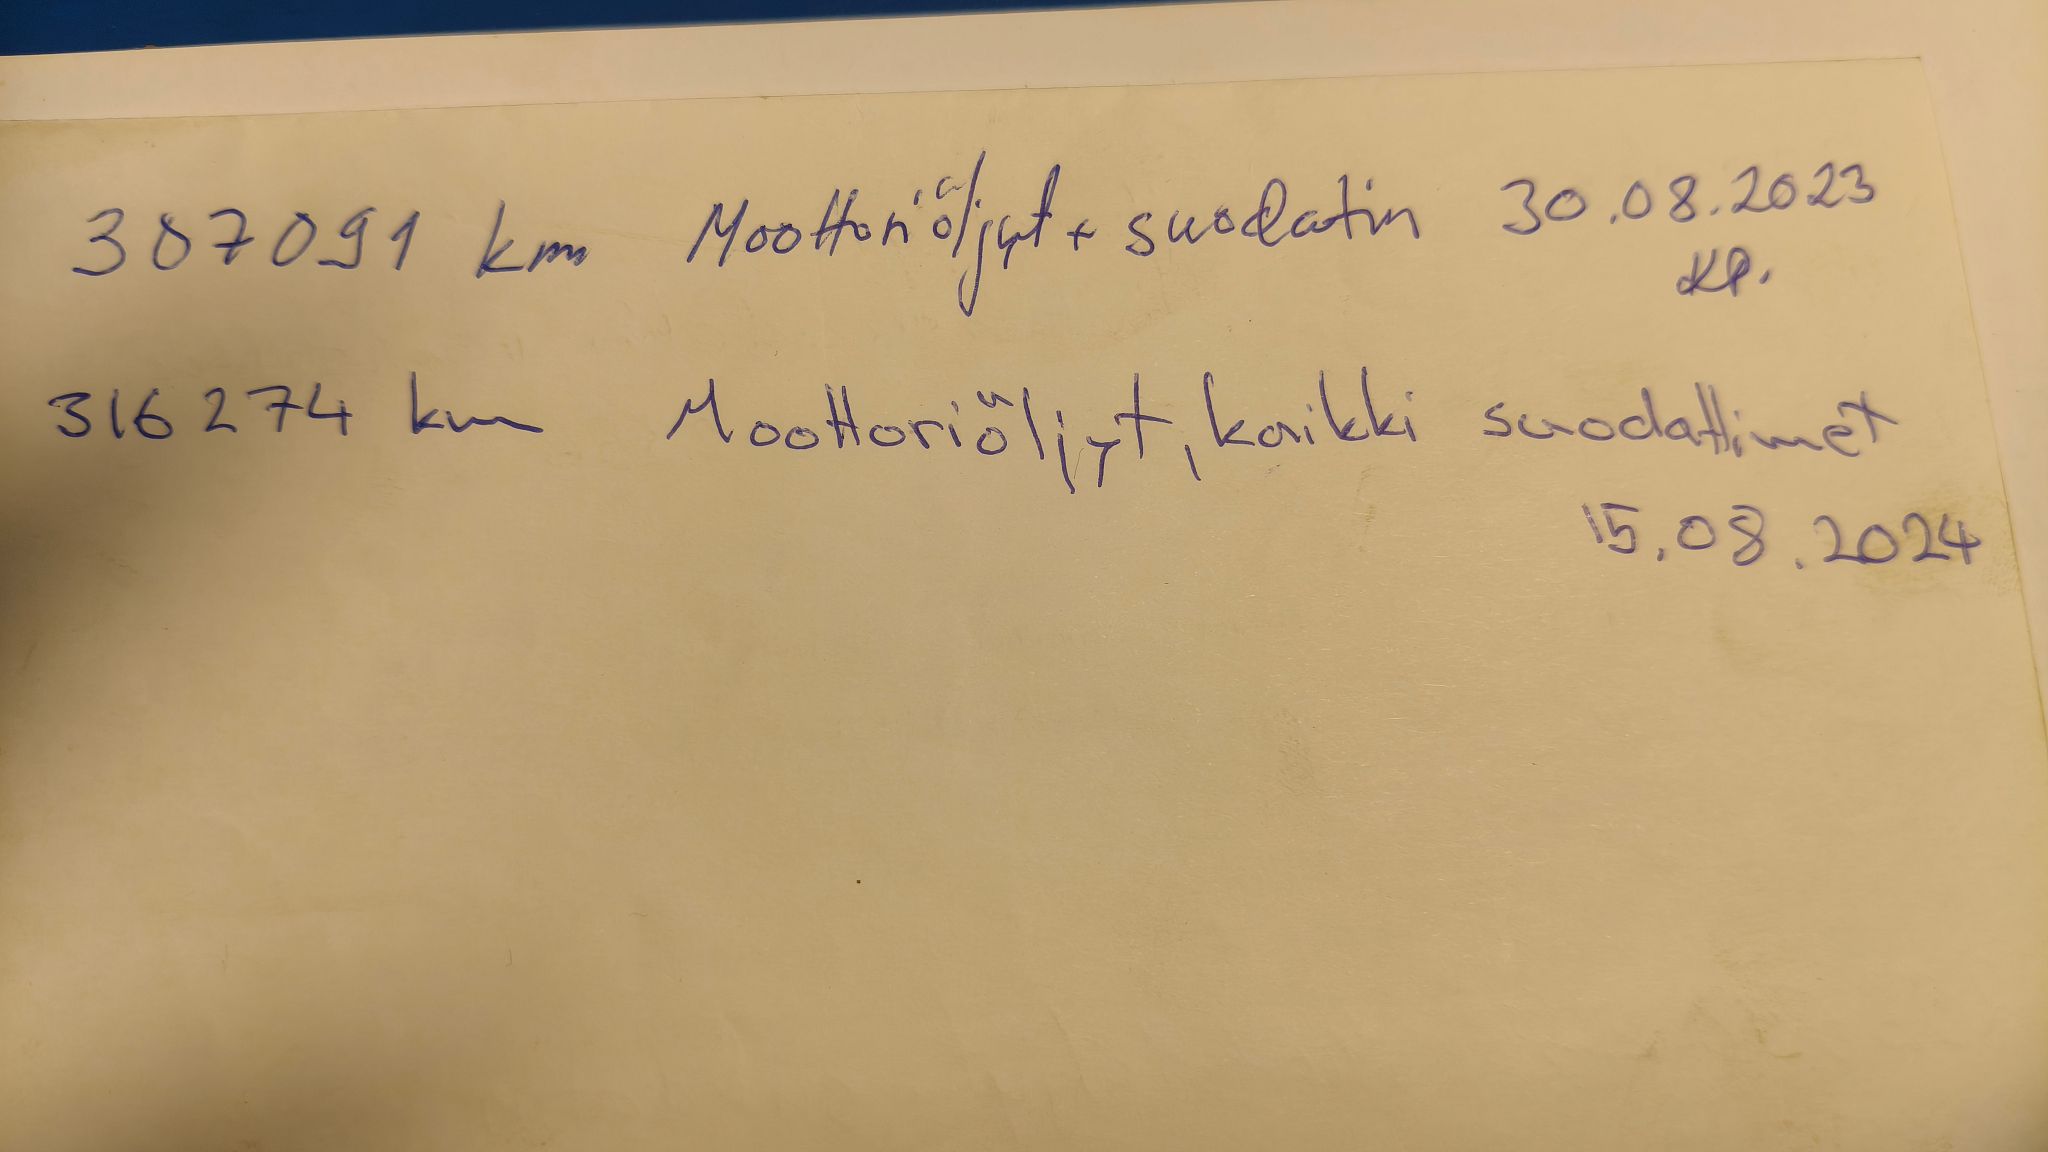 307091 km Moottoriöljyt + suodatin 30.08.2023
KP.
316274 km Moottoriöljyt, kaikki suodattimet
15.08.2024